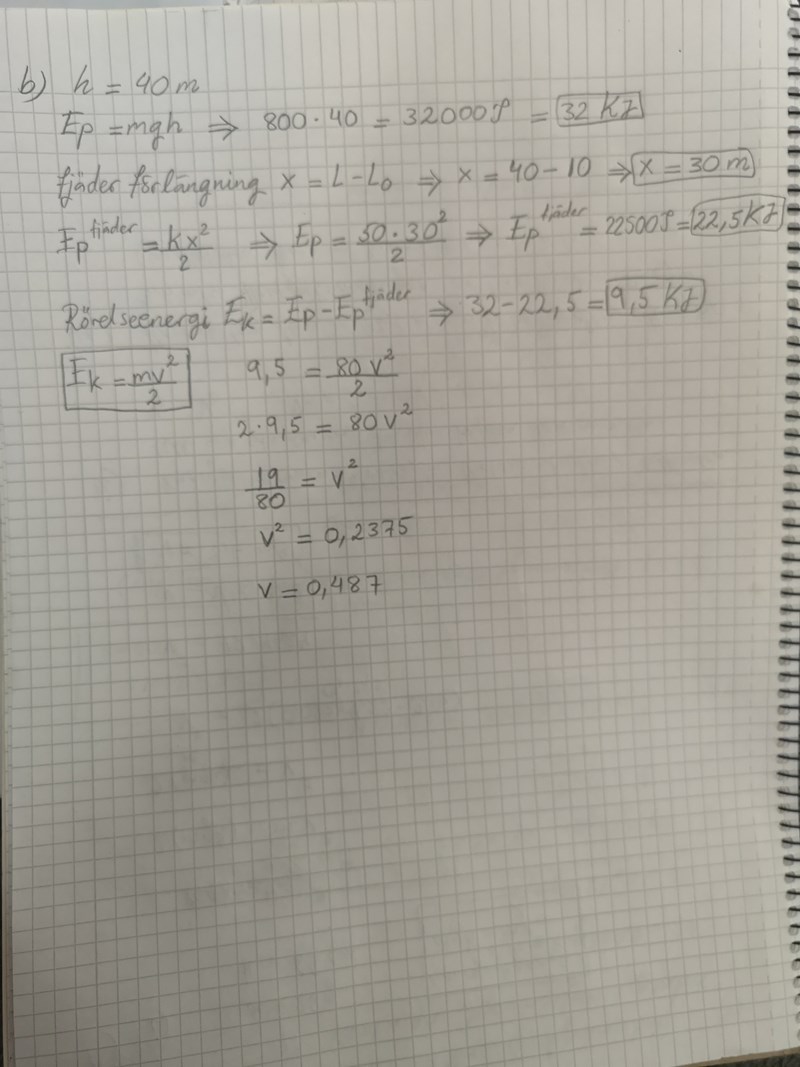 b) h = 40 m
Ep = mgh ⇒ 800 · 40 = 32000 J = 32 KJ
fjäder förlängning x = L - L₀ ⇒ x = 40 - 10 ⇒ x = 30 m
Ep^fjäder = kx²/2 ⇒ Ep = 50 · 30²/2 ⇒ Ep^fjäder = 22500 J = 22,5 KJ
Rörelseenergi Ek = Ep - Ep^fjäder ⇒ 32 - 22,5 = 9,5 KJ
Ek = mv²/2 9,5 = 80 v²/2
2 · 9,5 = 80 v²
19/80 = v²
v² = 0,2375
v = 0,487